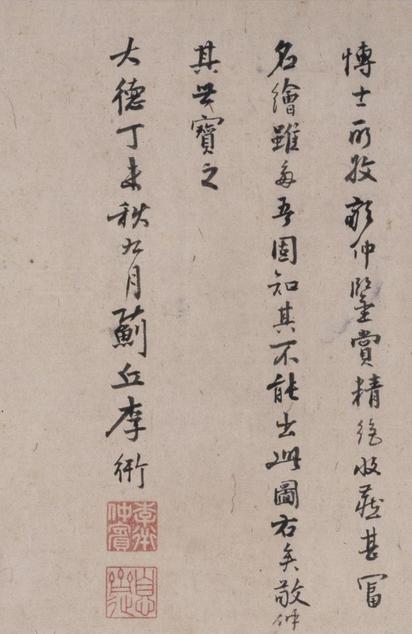 愽士所攷敬仲鑒賞精絕收藏甚富
名繪雖多吾固知其不能出此圖右矣敬仲
其世寶之
大德丁未秋九月薊丘李衎
李衎仲賓
息齋